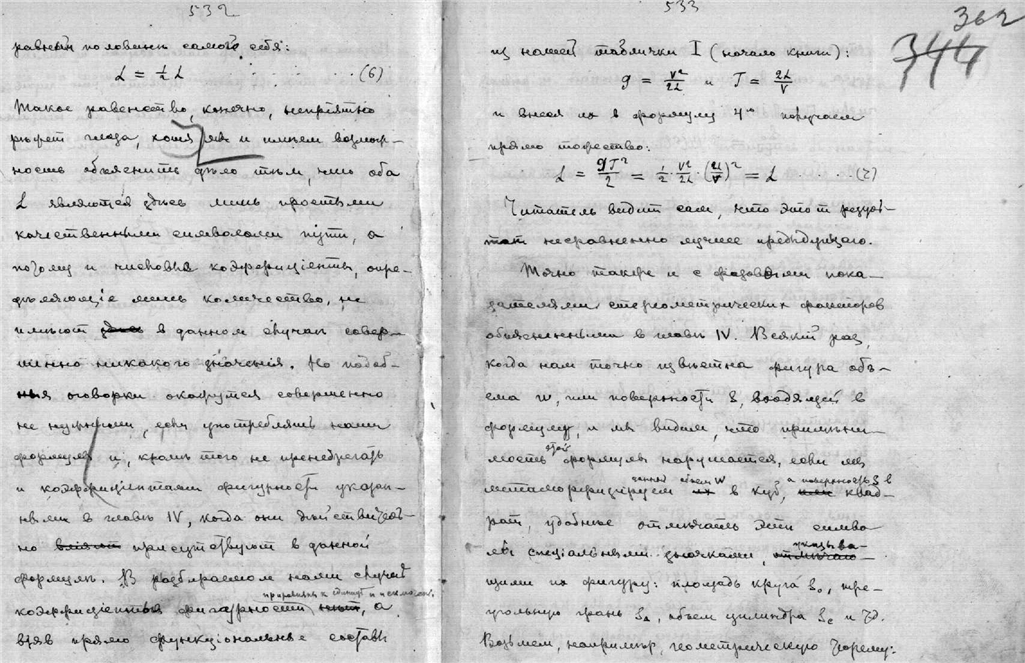 532
равный половинѣ самого себя:
L = ½ L . . . . . . (6)
Такое равенство, конечно, непріятно
рѣжет глаза, хотя мы и имѣем возмож-
ность объяснить дѣло тѣм, что оба
L являются здѣсь лишь простыми
качественными символами пути, а
потому и числовые коэффиціенты, опре-
дѣляющіе лишь количество, не
имѣют здѣсь в данном случаѣ совер-
шенно никакого значенія. Но подоб-
ныя оговорки окажутся совершенно
не нужными, если употреблять наши
формулы и, кромѣ того не пренебрегать
и коэффиціентами фигурности указан-
ными в главѣ IV, когда они дѣйствитель-
но присутствуют в данной
формулѣ. В разбираемом нами случаѣ
приравнены к единицѣ и
коэффиціенты фигурности, а
взяв прямо функціональные составы
533
362
344
из нашей таблички I (начало книги):
g = V²/2L и T = 2L/V
и внеся их в формулу 4ю получаем
прямо тожество:
L = gT²/2 = ½ · V²/2L · (2L/V)² = L . . . . . (7)
Читатель видит сам, что этот резуль-
тат несравненно лучше предыдущаго.
Точно также и с фазовыми пока-
зателями стереометрических факторов
объясненными в главѣ IV. Всякій раз,
когда нам точно извѣстна фигура объ-
ема w, или поверхности S, входящей в
формулу, и мы видим, что примѣни-
мость этой формулы нарушается, если мы
метаморфизируем данный объем w в куб, а поверхность S в квад-
рат, удобнѣе отличать эти симво-
лы специальными значками, указыва-
ющими их фигуру: площадь круга S₀, тре-
угольную грань S△, объем цилиндра и т.д.
Возьмем, например, геометрическую теорему: